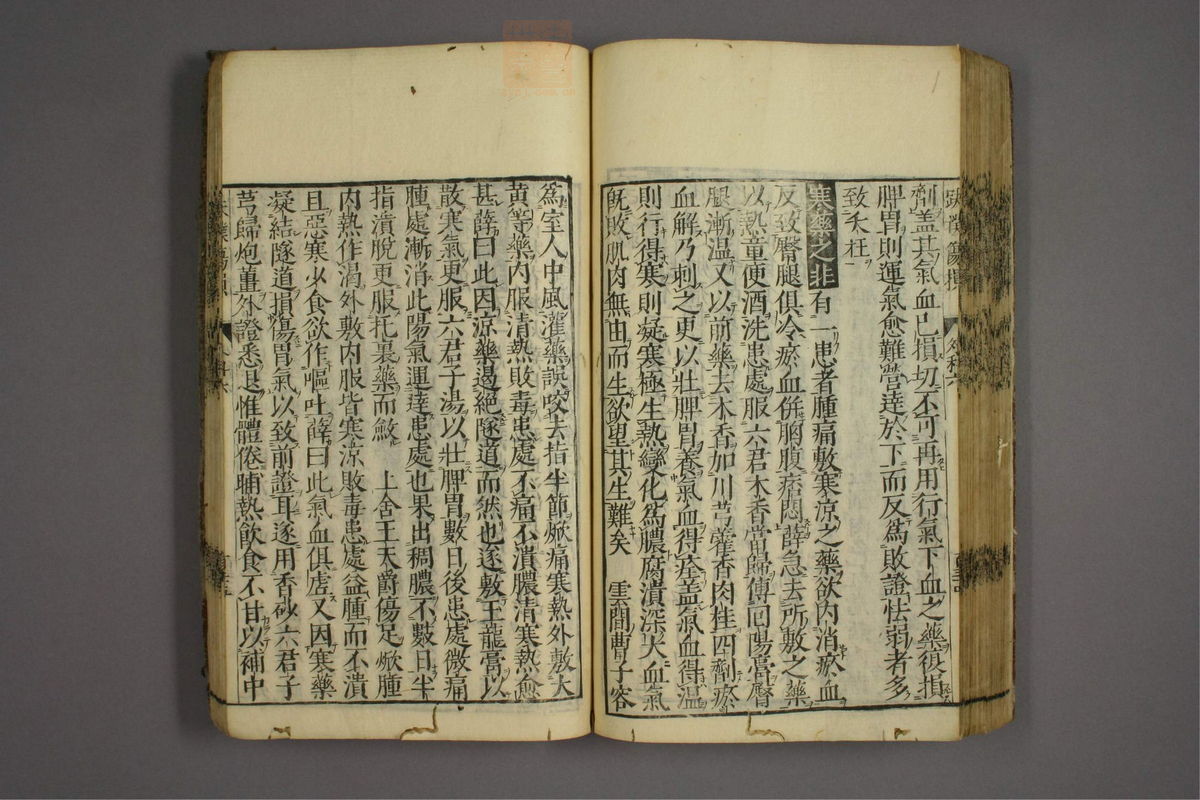 劑蓋其氣血已損切不可再用行氣下血之藥復損
脾胃則運氣愈難營達於下而反爲敗證怯弱者多
致夭枉
寒藥之非有一患者腫痛敷寒凉之藥欲内消瘀血
反致臀腿俱冷瘀血併胸腹痞悶薛急去所敷之藥
以熱童便酒洗患處服六君木香當歸傅回陽膏臀
腿漸温又以前藥去木香加川芎藿香肉桂四劑瘀
血解乃刺之更以壯脾胃養氣血得痊蓋氣血得温
則行得寒則凝寒極生熱變化爲膿腐潰深大血氣
既敗肌肉無由而生欲望其生難矣　雲間曹子容
爲室人中風灌藥誤咬去指半節焮痛寒熱外敷大
黄等藥内服清熱敗毒患處不痛不潰膿清寒熱愈
甚薛曰此因凉藥遏絕隧道而然也遂敷玉龍膏以
散寒氣更服六君子湯以壯脾胃數日後患處微痛
腫處漸消此陽氣運達患處也果出稠膿不數日半
指潰脫更服托裏藥而斂　上舍王天爵傷足焮腫
内熱作渴外敷内服皆寒凉敗毒患處益腫而不潰
且惡寒少食欲作嘔吐薛曰此氣血俱虛又因寒藥
凝結隧道損傷胃氣以致前證耳遂用香砂六君子
芎歸炮薑外證悉退惟體倦晡熱飲食不甘以補中